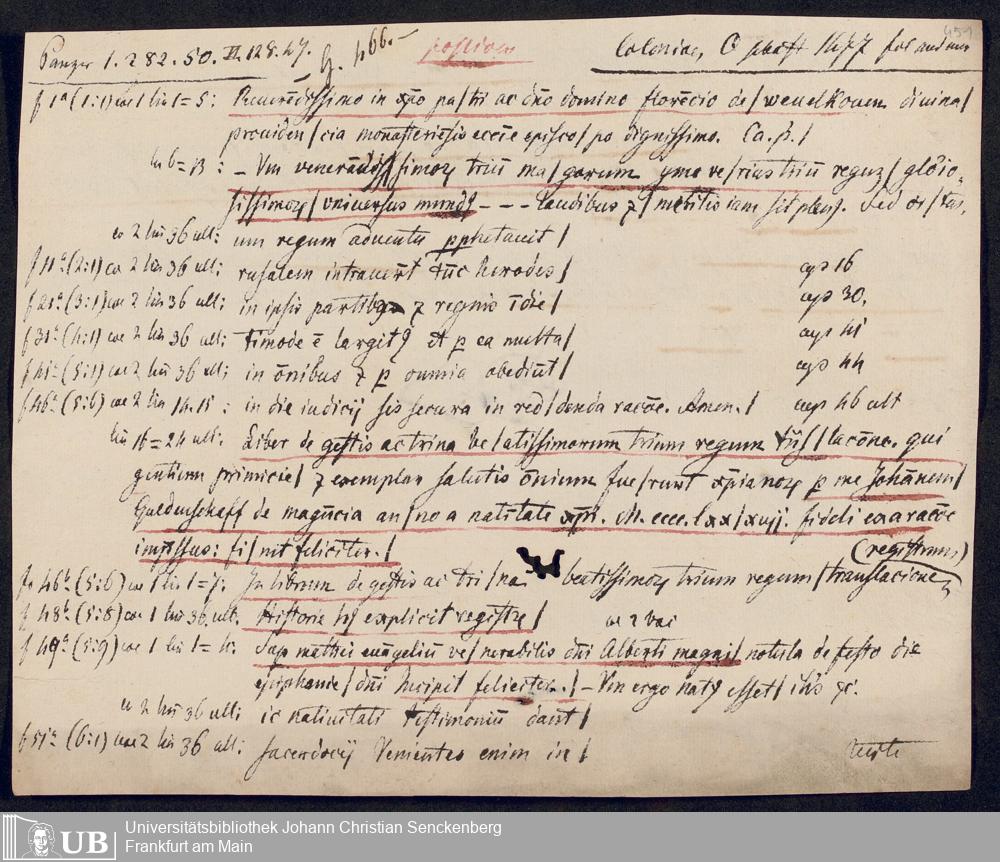 451
Panzer 1. 282. 50. VI. 128. 47. G. p 66.– Coloniae, G schaff 1477 fol
f 1ª (1:1) coe 1 lin 1=5: Reuerēdissimo in xp̄o pa/tri ac dn̄o domino florēcio de/weuelkouen divina/
prouiden/cia monasteriēsis eccē episco/po dignissimo. Ca. p./
lin 6=13: – Vm venerādis/simoꝝ triū ma/gorum ymo ve/rius triū reguꝫ/ glōio-
sissimoꝝ/ vniuersus mundꝰ - - - laudibus ⁊/ meritis iam sit plenꝰ. Sed
co 2 lin 36 ult: um regum aduentu ꝓphetauit/
f 11ª (2:1) coe 2 lin 36 ult: rusalem intrauer̄t tūc herodes/ cap 16
f 21ª (3:1) coe 2 lin 36 ult: in ipsis partibꝫ ⁊ regnis īdie/ cap 30.
f 31ª (4:1) coe 2 lin 36 ult: timode ē largitꝰ et ꝑ ea multa/ cap 41
f 41ª (5:1) coe 2 lin 36 ult: in ōnibus ⁊ ꝑ oumia obediūt/ cap 44
f 46ª (5:6) coe 2 lin 14.15: in die iudicij sis secura in red/denda racōe. Amen./ cap 46 ult
lin 16=24 ult: Liber de gestis ac trina be/atissimorum trium regum trās/lacōne. qui
gentium primicie/ ⁊ exemplar salutis ōnium fue/runt xp̄ianoꝝ ꝑ me Johānem/
Guldenschaff de magūcia an/no a natītate xp̄i. M. cccc. lxx/xvij. fideli exaracōe
imp̄ssus: fi/nit feliciter./ (registrum)
fo 46ᵇ (5:6) coe 1 lin 1=7: In librum de gestis ac tri/na beatissimoꝝ trium regum/ translacione
f 48ᵇ (5:8) coe 1 lin 36 ult. Historie hꝰ explicit registrꝫ/ co 2 vac
f 49ª (5:9) coe 1 lin 1=4: Sup mathei euāgeliū ve/nerabilis dn̄i Alberti magni/ notula de festo die
epiphanie/ dn̄i Incipit feliciter./ – Vm ergo natꝰ esset/ ihs ꝛc.
co 2 lin 36 ult: ic natiuitati testimoniū dant/
f 51ª (6:1) coe 2 lin 36 ult: sacerdocij Venientes enim in/
UB
Universitätsbibliothek Johann Christian Senckenberg
Frankfurt am Main